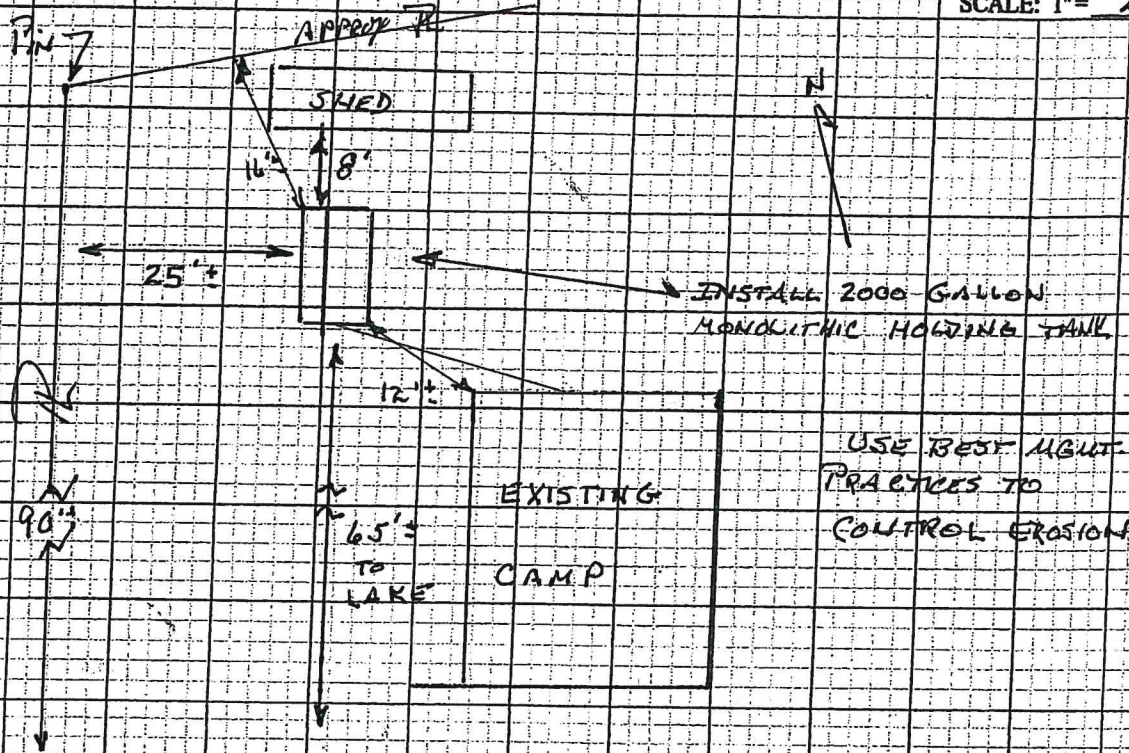 SCALE: 1" =
PIN
APPROX PL
SHED
N
16'±
8'
25'±
INSTALL 2000 GALLON
MONOLITHIC HOLDING TANK
12'±
USE BEST MGMT.
PRACTICES TO
CONTROL EROSION
EXISTING
CAMP
90'±
65'±
TO
LAKE